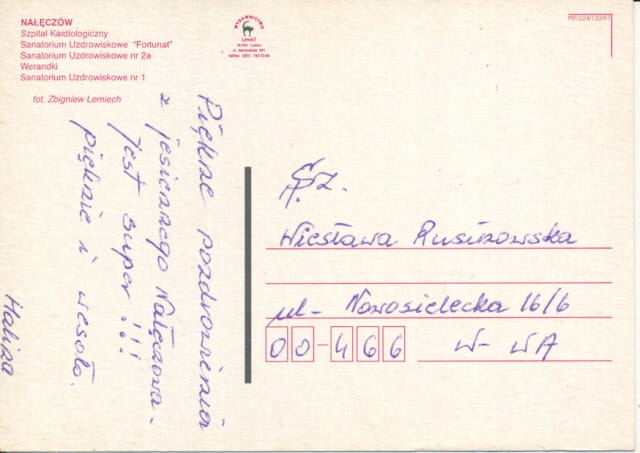 NAŁĘCZÓW
Szpital Kardiologiczny
Sanatorium Uzdrowiskowe "Fortunat"
Sanatorium Uzdrowiskowe nr 2a
Werandki
Sanatorium Uzdrowiskowe nr 1
fot. Zbigniew Lemiech
WYDAWNICTWO
PRT-024/132/97
Piękne pozdrowienia
z jesiennego Nałęczowa -
Jest super !!!
pięknie i wesoło.
Halina
Sz.
Wiesława Rusinowska
ul- Nowosielecka 16/6
00-466 W-WA